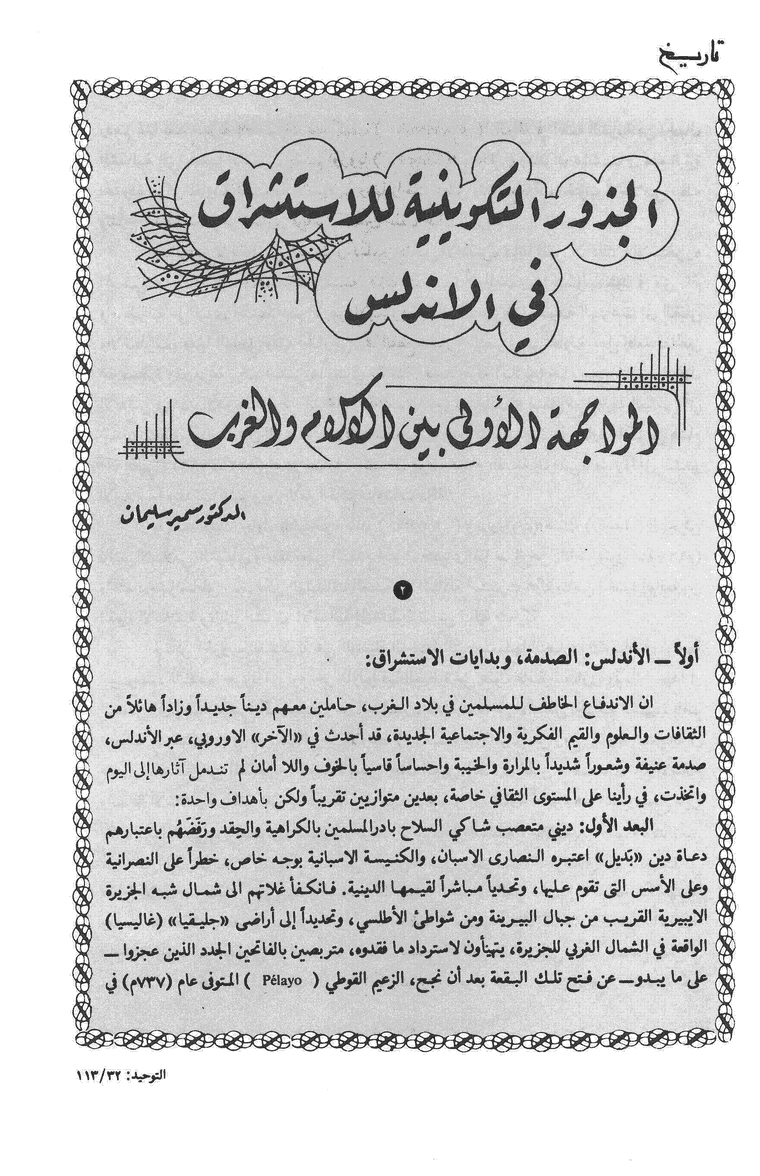 تاريخ
الجذور التكوينية للاستشراق
في الاندلس
المواجهة الأولى بين الاسلام والغرب
الدكتور سمير سليمان
٢
أولاً ــ الأندلس: الصدمة، وبدايات الاستشراق:
ان الاندفاع الخاطف للمسلمين في بلاد الغرب، حاملين معهم ديناً جديداً وزاداً هائلاً من
الثقافات والعلوم والقيم الفكرية والاجتماعية الجديدة، قد أحدث في «الآخر» الاوروبي، عبر الأندلس،
صدمة عنيفة وشعوراً شديداً بالمرارة والخيبة واحساساً قاسياً بالخوف واللا أمان لم تندمل آثارها إلى اليوم
واتخذت، في رأينا على المستوى الثقافي خاصة، بعدين متوازيين تقريباً ولكن بأهداف واحدة:
البعد الأول: ديني متعصب شاكي السلاح بادر المسلمين بالكراهية والحقد ورَفَضَهُم باعتبارهم
دعاة دين «بَديل» اعتبره النصارى الاسبان، والكنيسة الاسبانية بوجه خاص، خطراً على النصرانية
وعلى الأسس التي تقوم عليها، وتحدياً مباشراً لقيمها الدينية. فانكفأ غلاتهم الى شمال شبه الجزيرة
الايبيرية القريب من جبال البيرينة ومن شواطئ الأطلسي، وتحديداً إلى أراضى «جليقيا» (غاليسيا)
الواقعة في الشمال الغربي للجزيرة، يتهيأون لاسترداد ما فقدوه، متربصين بالفاتحين الجدد الذين عجزوا ــ
على ما يبدو ــ عن فتح تلك البقعة بعد أن نجح، الزعيم القوطي ( Pélayo ) المتوفى عام (٧٣٧م) في
التوحيد: ١١٣/٣٢